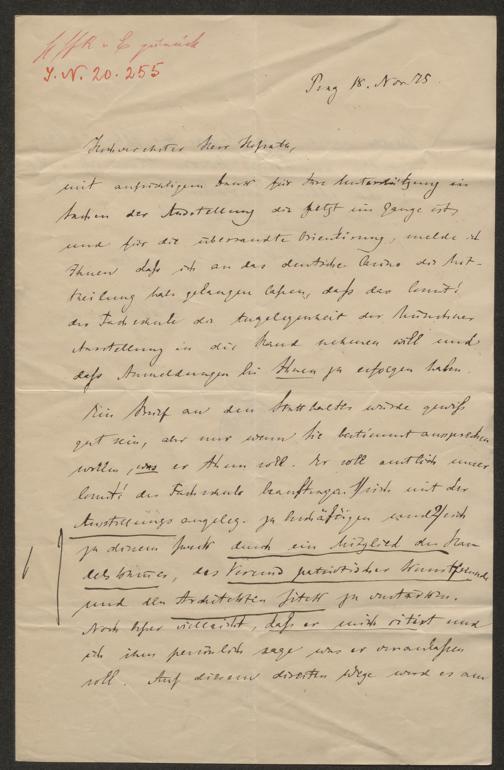 zurück
I. N. 20.255
Prag 18. Nov 75.
Hochverehrter Herr Hofrath,
mit aufrichtigem Dank für Ihre Unterstützung in
Sachen der Ausstellung die jetzt im Gange ist,
und für die übersandte Orientirung, melde ich
Ihnen daß ich an das deutsche Casino die Mit-
theilung habe gelangen lassen, daß das Comité
der Fachschule die Angelegenheit der Münchner
Ausstellung in die Hand nehmen will und
daß Anmeldungen bei Ihnen zu erfolgen haben.
Ein Brief an den Statthalter würde gewiß
gut sein, aber nur wenn Sie bestimmt aussprechen
wollen, was er thun soll. Er soll amtlich unser
Comité der Fachschule beauftragen 1/ sich mit der
Ausstellungsangeleg. zu beschäftigen und 2/ sich
zu diesem Zweck durch ein Mitglied der Han-
delskammer, des Vereins patriotischer Kunstfreunde
und den Architekten zu verstärken.
Noch besser vielleicht, daß er mich citirt und
ich ihm persönlich sage was er veranlassen
soll. Auf diesem direkten Wege wird es am